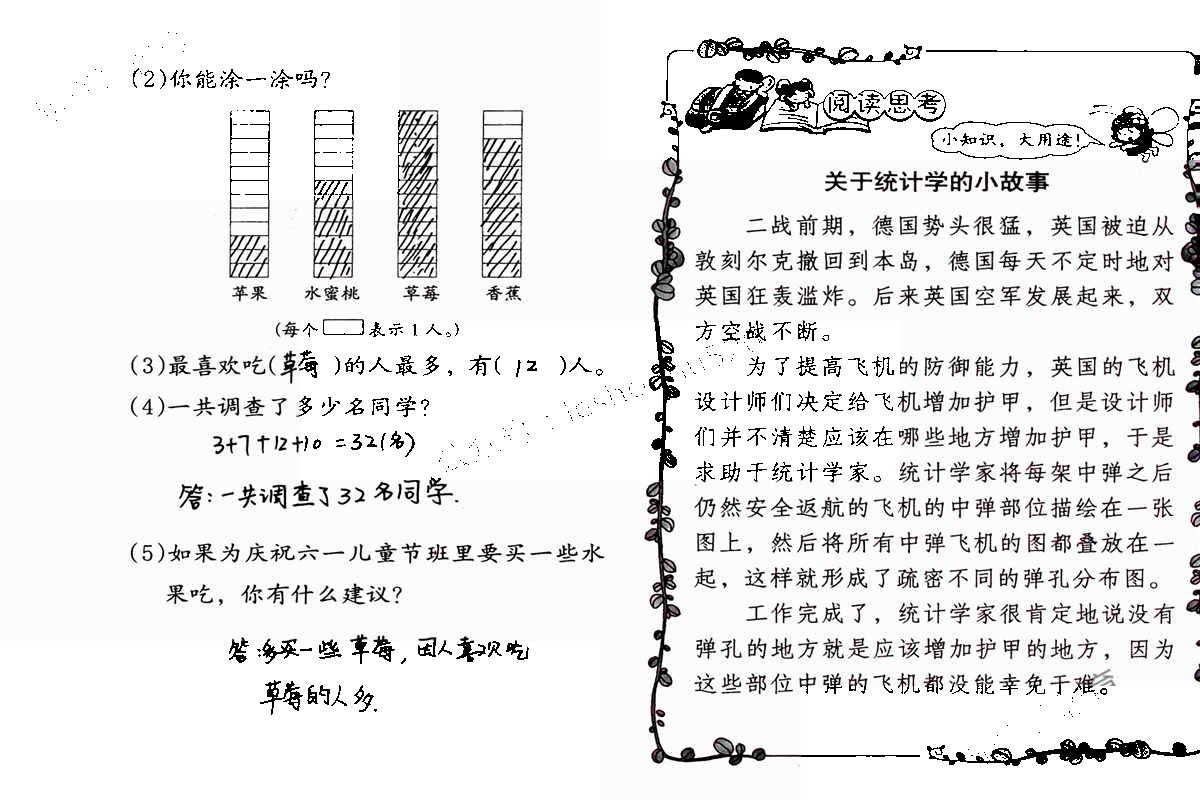 (2)你能涂一涂吗？
苹果 水蜜桃 草莓 香蕉
(每个 表示1人。)
(3)最喜欢吃(草莓)的人最多，有(12)人。
(4)一共调查了多少名同学？
3+7+12+10=32(名)
答：一共调查了32名同学.
(5)如果为庆祝六一儿童节班里要买一些水
果吃，你有什么建议？
答：多买一些草莓，因人喜欢吃
草莓的人多.
阅读思考
小知识，大用途！
关于统计学的小故事
二战前期，德国势头很猛，英国被迫从
敦刻尔克撤回到本岛，德国每天不定时地对
英国狂轰滥炸。后来英国空军发展起来，双
方空战不断。
为了提高飞机的防御能力，英国的飞机
设计师们决定给飞机增加护甲，但是设计师
们并不清楚应该在哪些地方增加护甲，于是
求助于统计学家。统计学家将每架中弹之后
仍然安全返航的飞机的中弹部位描绘在一张
图上，然后将所有中弹飞机的图都叠放在一
起，这样就形成了疏密不同的弹孔分布图。
工作完成了，统计学家很肯定地说没有
弹孔的地方就是应该增加护甲的地方，因为
这些部位中弹的飞机都没能幸免于难。